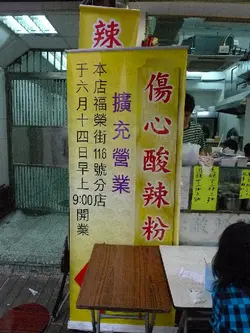 辣
傷心酸辣粉
擴充營業
本店福榮街116號分店
于六月十四日早上9:00開業